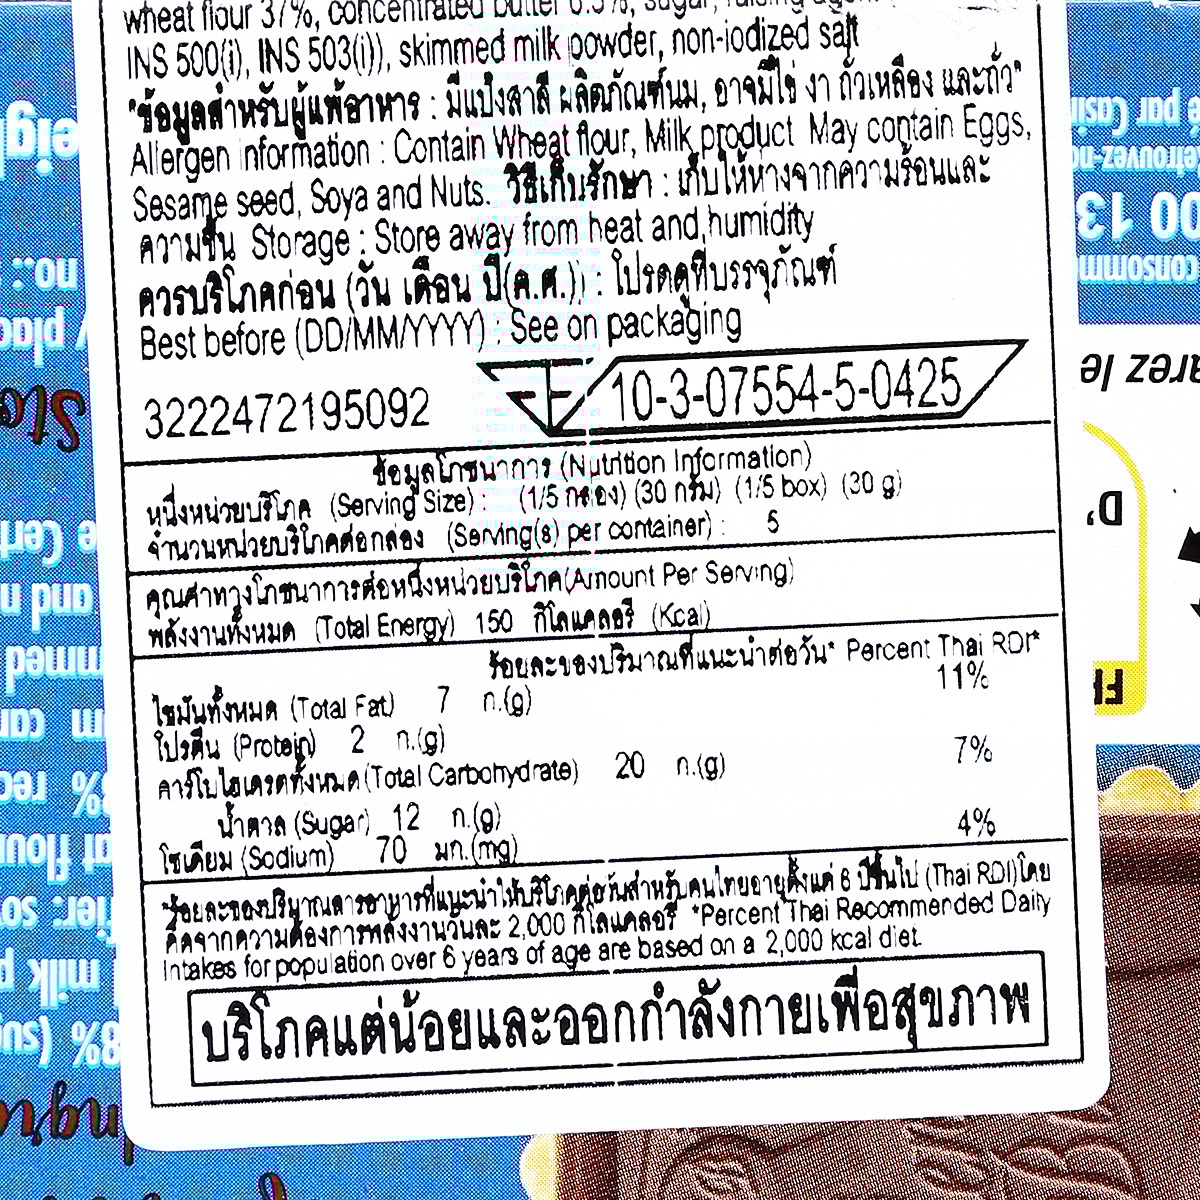 wheat flour 37%, concentrated butter
INS 500(i), INS 503(i)), skimmed milk powder, non-iodized salt
"ข้อมูลสำหรับผู้แพ้อาหาร : มีแป้งสาลี ผลิตภัณฑ์นม, อาจมีไข่ งา ถั่วเหลือง และถั่ว"
Allergen information : Contain Wheat flour, Milk product May contain Eggs,
Sesame seed, Soya and Nuts. วิธีเก็บรักษา : เก็บให้ห่างจากความร้อนและ
ความชื้น Storage : Store away from heat and humidity
ควรบริโภคก่อน (วัน เดือน ปี(ค.ศ.)) : โปรดดูที่บรรจุภัณฑ์
Best before (DD/MM/YYYY) : See on packaging
3222472195092 10-3-07554-5-0425
ข้อมูลโภชนาการ (Nutrition Information)
หนึ่งหน่วยบริโภค (Serving Size) : (1/5 กล่อง) (30 กรัม) (1/5 box) (30 g)
จำนวนหน่วยบริโภคต่อกล่อง (Serving(s) per container) : 5
คุณค่าทางโภชนาการต่อหนึ่งหน่วยบริโภค(Amount Per Serving)
พลังงานทั้งหมด (Total Energy) 150 กิโลแคลอรี (Kcal)
ร้อยละของปริมาณที่แนะนำต่อวัน* Percent Thai RDI*
ไขมันทั้งหมด (Total Fat) 7 ก.(g) 11%
โปรตีน (Protein) 2 ก.(g)
คาร์โบไฮเดรตทั้งหมด(Total Carbohydrate) 20 ก.(g) 7%
น้ำตาล (Sugar) 12 ก.(g)
โซเดียม (Sodium) 70 มก.(mg) 4%
*ร้อยละของปริมาณสารอาหารที่แนะนำให้บริโภคต่อวันสำหรับคนไทยอายุตั้งแต่ 6 ปีขึ้นไป (Thai RDI)โดย
คิดจากความต้องการพลังงานวันละ 2,000 กิโลแคลอรี *Percent Thai Recommended Daily
Intakes for population over 6 years of age are based on a 2,000 kcal diet.
บริโภคแต่น้อยและออกกำลังกายเพื่อสุขภาพ